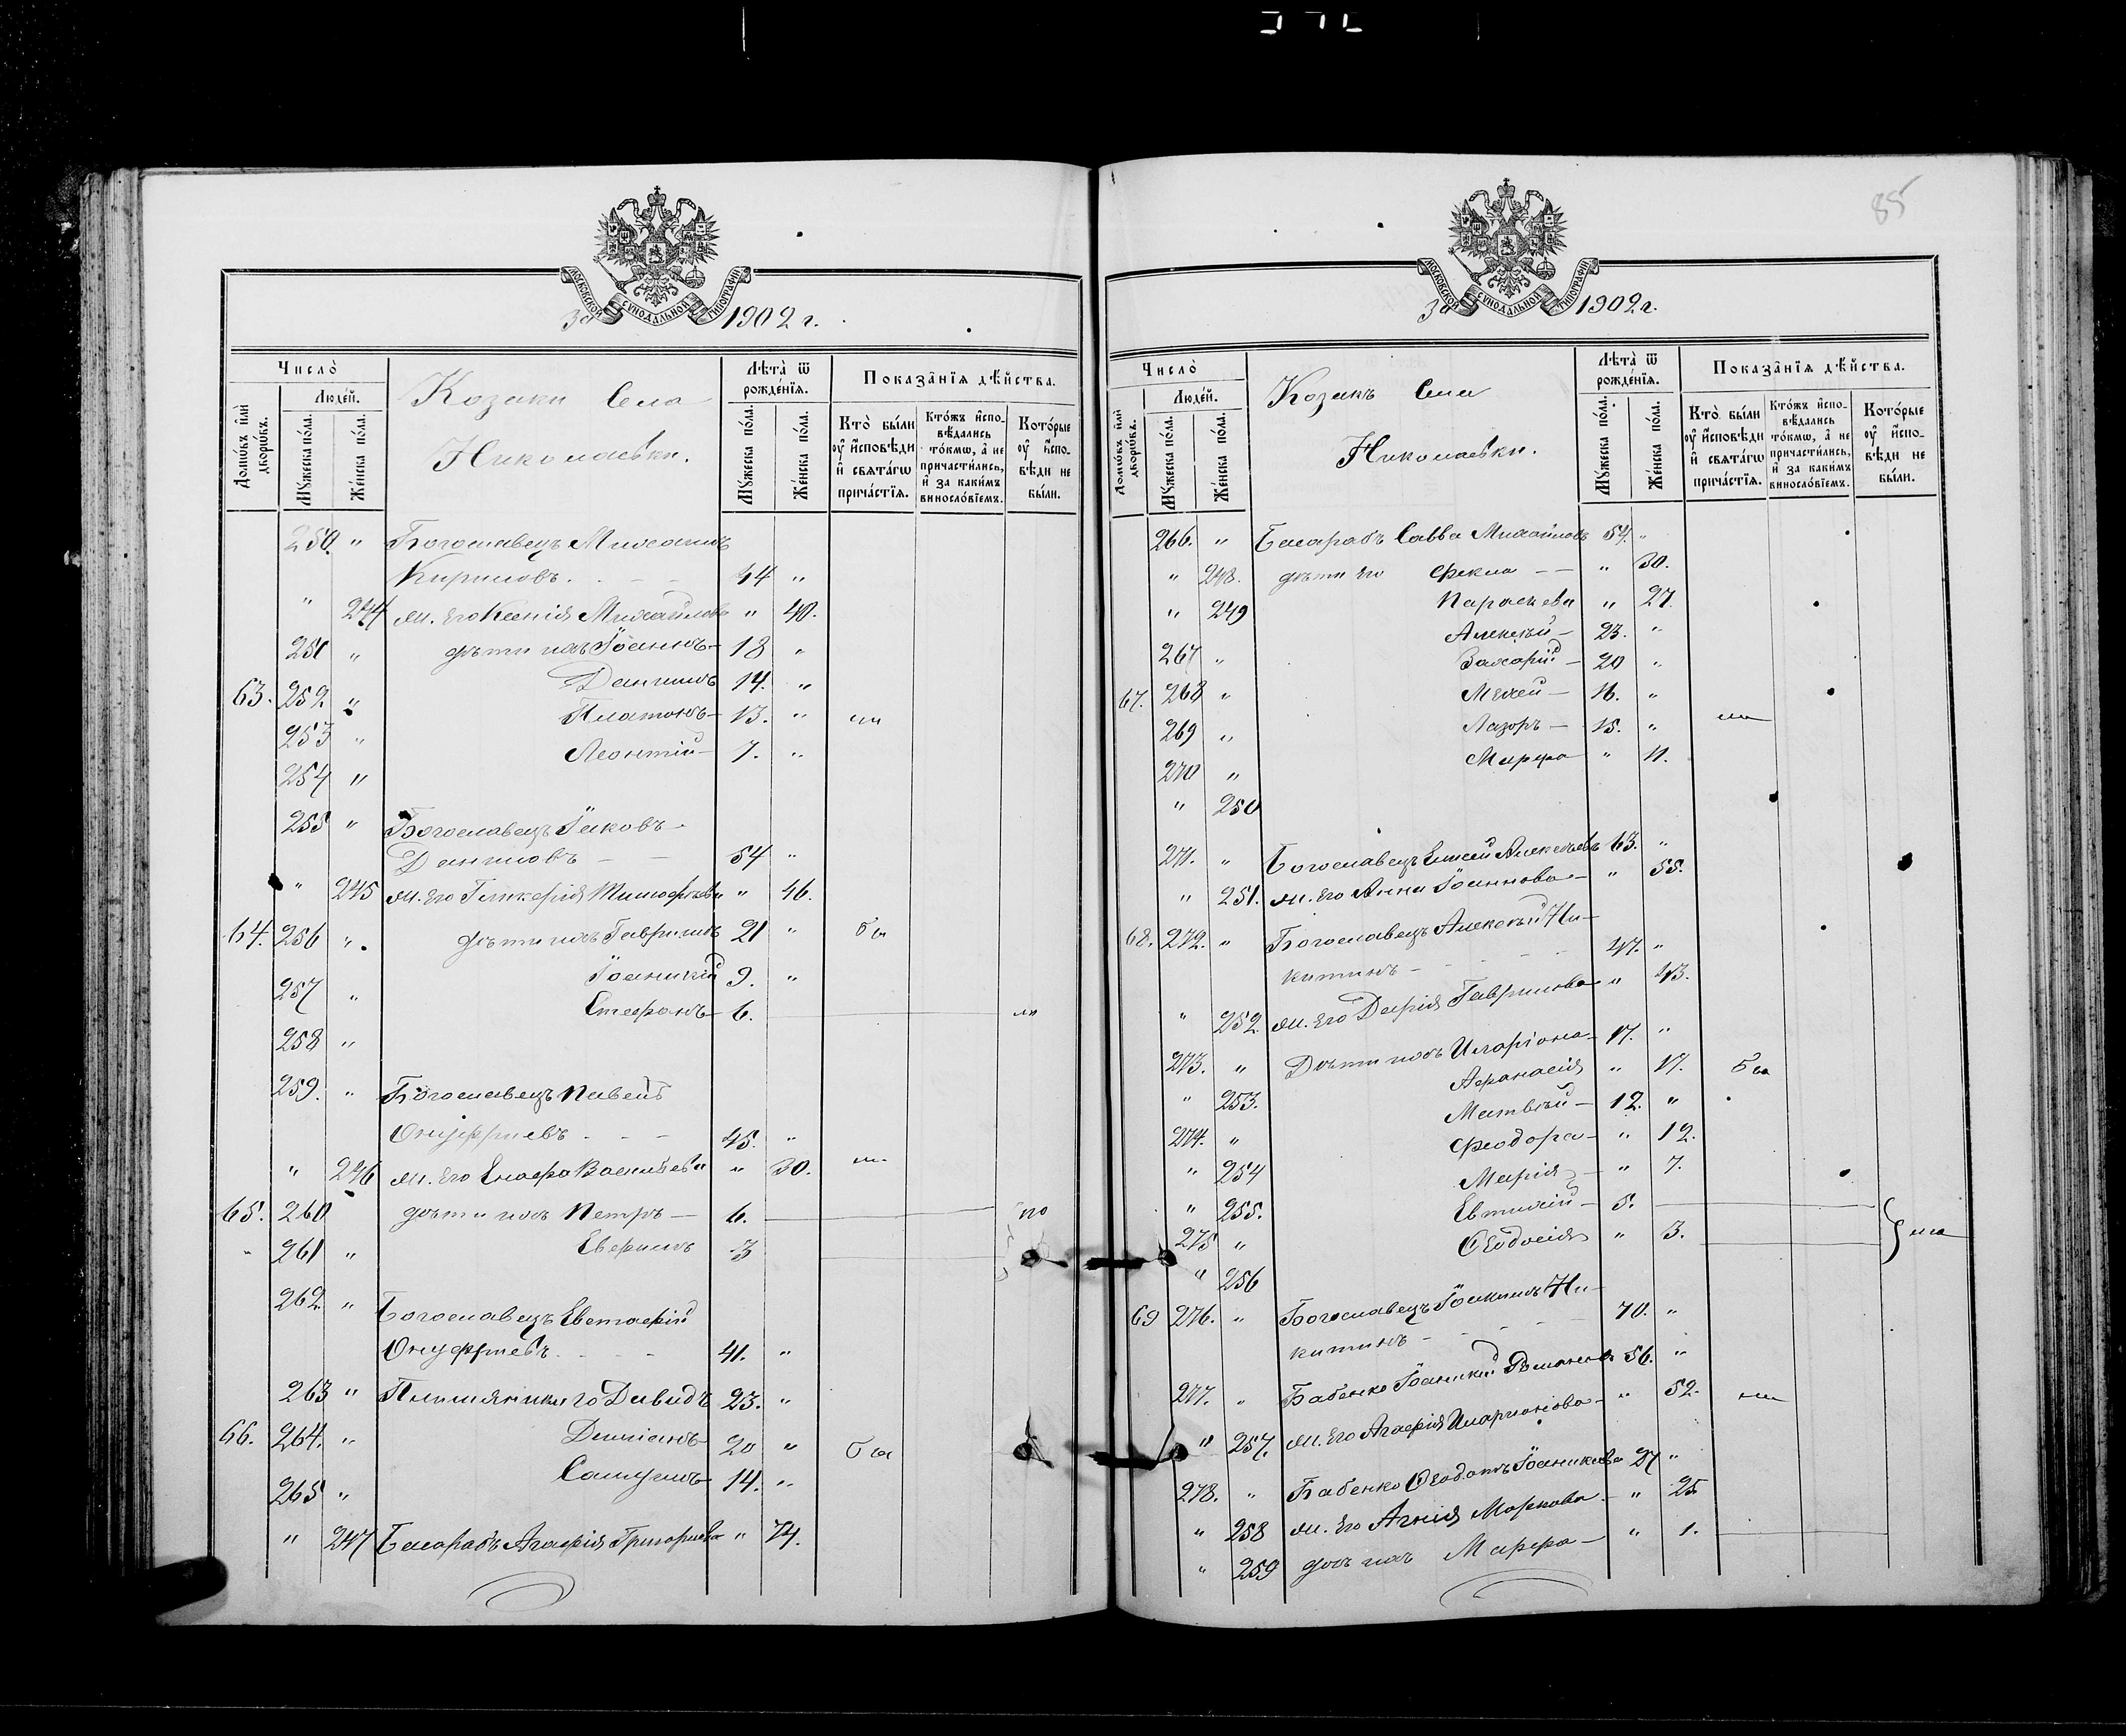 85
МОСКОВСКОЙ СУНОДАЛЬНОЙ ТИПОГРАФІИ
За 1902 г.
Число̀ Лѣта̀ ѿ рожде́нїѧ. Показа̑нїѧ дѣ́йства.
Люде́й.
Домѡ́въ и҆лѝ дворѡ́въ. Мꙋ́жеска по́ла. Же́нска по́ла. Козаки Села Николаевки. Мꙋ́жеска по́ла. Же́нска по́ла. Кто̀ бы́ли ᲂу҆ и҆сповѣди и҆ свята́гѡ прича́стїѧ. Кто́жъ и҆сповѣ́дались то́кмѡ, а҆ не причасти́лись, и҆ за каки́мъ виносло́вїемъ. Кото́рые ᲂу҆ и҆сповѣди не бы́ли.
250. " Богославецъ Михаилъ
Кириловъ. - - - 44 "
" 244 ж. его Ксенія Михайлова " 40.
251 " дѣти ихъ Іоаннъ - 18 "
Даниилъ 14. "
63. 252. "
Платонъ - 13. "
253 "
Леонтій - 7. "
254 "
255 " Богославецъ Іаковъ -
Даниловъ - - 54 "
" 245 ж. его Гликерія Тимофѣева " 46.
64. 256 " дѣти ихъ Гавриилъ 21 "
257 " Іоаникій 9. "
Стефанъ - 6.
258 "
259. " Богославецъ Павелъ
Онуфриевъ - - - 45. "
" 246 ж. его Васильева " 30.
65. 260 дѣти ихъ Петръ - 6.
261 " 3
262. " Богославецъ Евстафій
Онуфриевъ - - - 41. "
263 " Племянники его Давидъ 23. "
66. 264. " Даміанъ 20 "
265 " Самуилъ 14. "
" 247 Басарабъ Агафія Григориева " 74.
МОСКОВСКОЙ СУНОДАЛЬНОЙ ТИПОГРАФІИ
За 1902 г.
Число̀ Лѣта̀ ѿ рожде́нїѧ. Показа̑нїѧ дѣ́йства.
Люде́й.
Домѡ́въ и҆лѝ дворѡ́въ. Мꙋ́жеска по́ла. Же́нска по́ла. Козакъ Села Николаевки. Мꙋ́жеска по́ла. Же́нска по́ла. Кто̀ бы́ли ᲂу҆ и҆сповѣди и҆ свята́гѡ прича́стїѧ. Кто́жъ и҆сповѣ́дались то́кмѡ, а҆ не причасти́лись, и҆ за каки́мъ виносло́вїемъ. Кото́рые ᲂу҆ и҆сповѣди не бы́ли.
266. " Басарабъ Савва Михаиловъ 54. "
" 248. дѣти его Фекла - - " 30.
" 249 Параскева " 27.
Алексѣй - 23. "
267 " Захарій - 20 "
67. 268 " 16. "
269 " Лазорь - 15. "
270 " Марфа " 11.
" 250
271. " Богославецъ Елисей Алексѣевъ 63. "
" 251. ж. его Анна Іоаннова - " 55.
68. 272. " Богославецъ Алексѣй Ни-
китинъ - - - - 47. "
" 252 ж. его Дарія Гавриилова " 43.
273. " Дѣти ихъ Иларіона - 17. "
" 253. Афанасія " 17.
274. " Матвѣй - 12. "
" 254 Феодора - " 12.
" 255. Марія - " 7.
275 " Евтихій - 5.
" 256 Ѳеодосія " 3.
69 276. " Богославецъ Іоакимъ Ни-
китинъ - - - - 70. "
277. " Бабенко Іоаникій 56. "
" 257. ж. его Агафія Иларионова - " 52.
278. " Бабенко Ѳеодотъ Іоаникіевъ 27 "
" 258 ж. его Агнія Маркова - " 25
" 259 дочь ихъ Марфа - " 1.